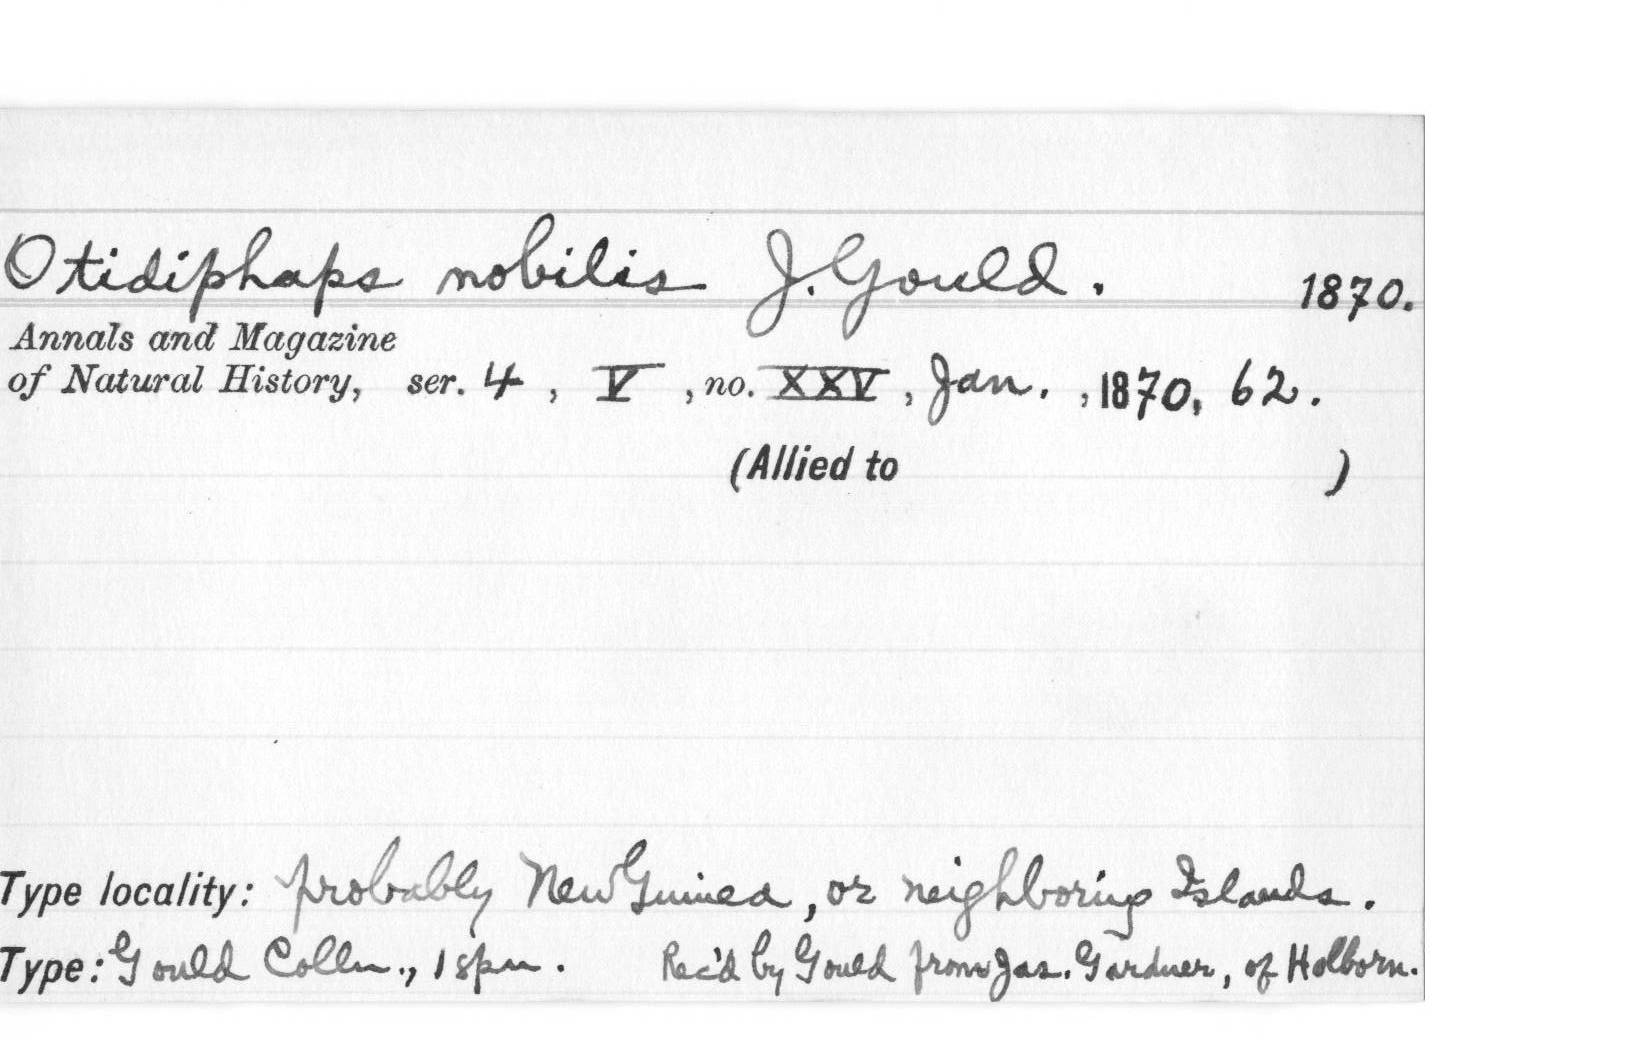 Otidiphaps nobilis J. Gould. 1870.
Annals and Magazine
of Natural History, ser. 4, V, no. XXV, Jan., 1870, 62.
(Allied to )
Type locality: probably New Guinea, or neighboring Islands.
Type: Gould Colln., 1 spn. Rec'd by Gould from Jas. Gardner, of Holborn.